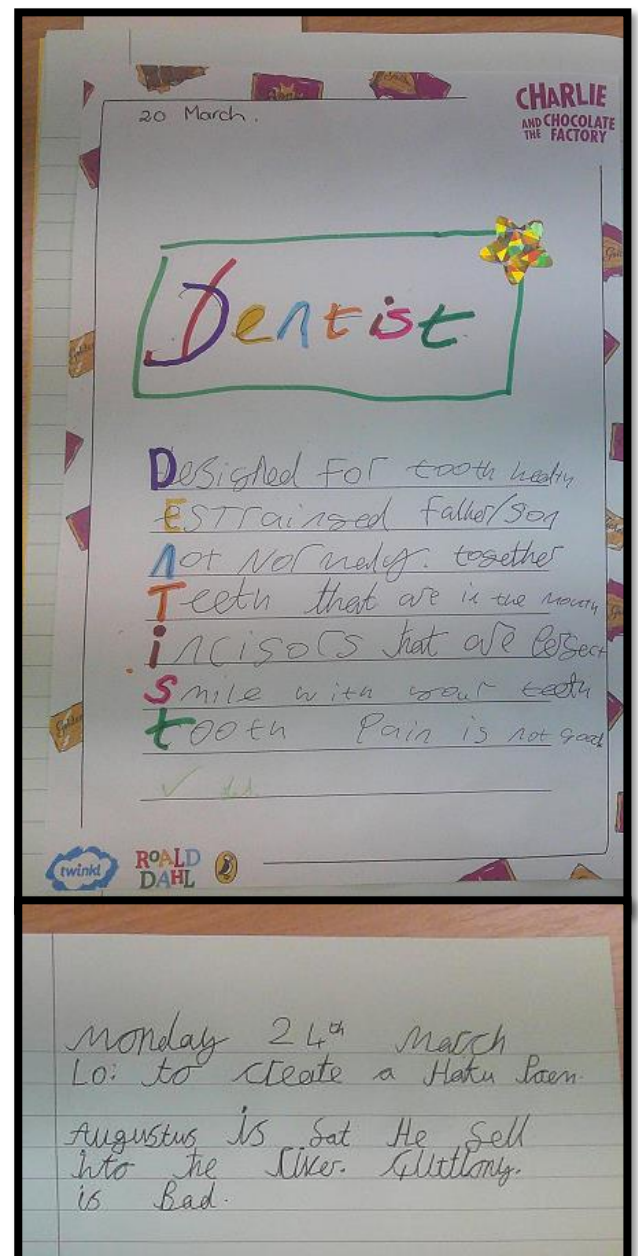 20 March.
CHARLIE
AND THE CHOCOLATE
FACTORY
Dentist
Designed For tooth health
ESTrainged Father/Son
not Normely. together
Teeth that are in the mouth
incisors that are Perfect
Smile with your teeth
tooth Pain is not good
twinkl
ROALD
DAHL
Monday 24th March
Lo: to create a Haku Poem.
Augustus is fat He fell
into the River. Gluttony.
is Bad.